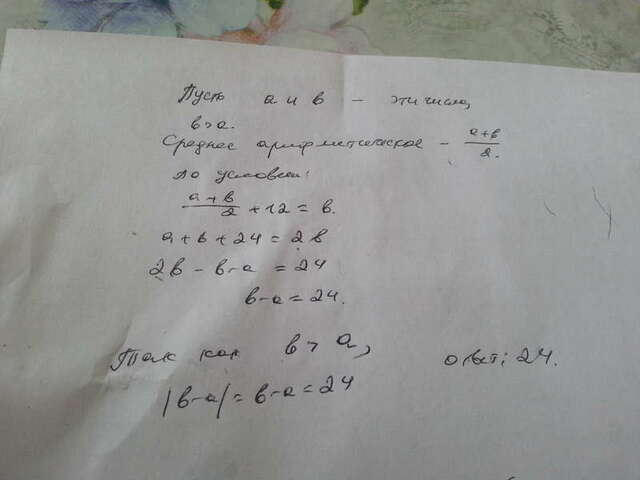 Пусть a и b – эти числа,
b>a.
Среднее арифметическое – (a+b)/2.
по условию:
(a+b)/2 + 12 = b.
a + b + 24 = 2b
2b – b – a = 24
b – a = 24.
Так как b > a,
|b–a| = b–a = 24
ответ: 24.